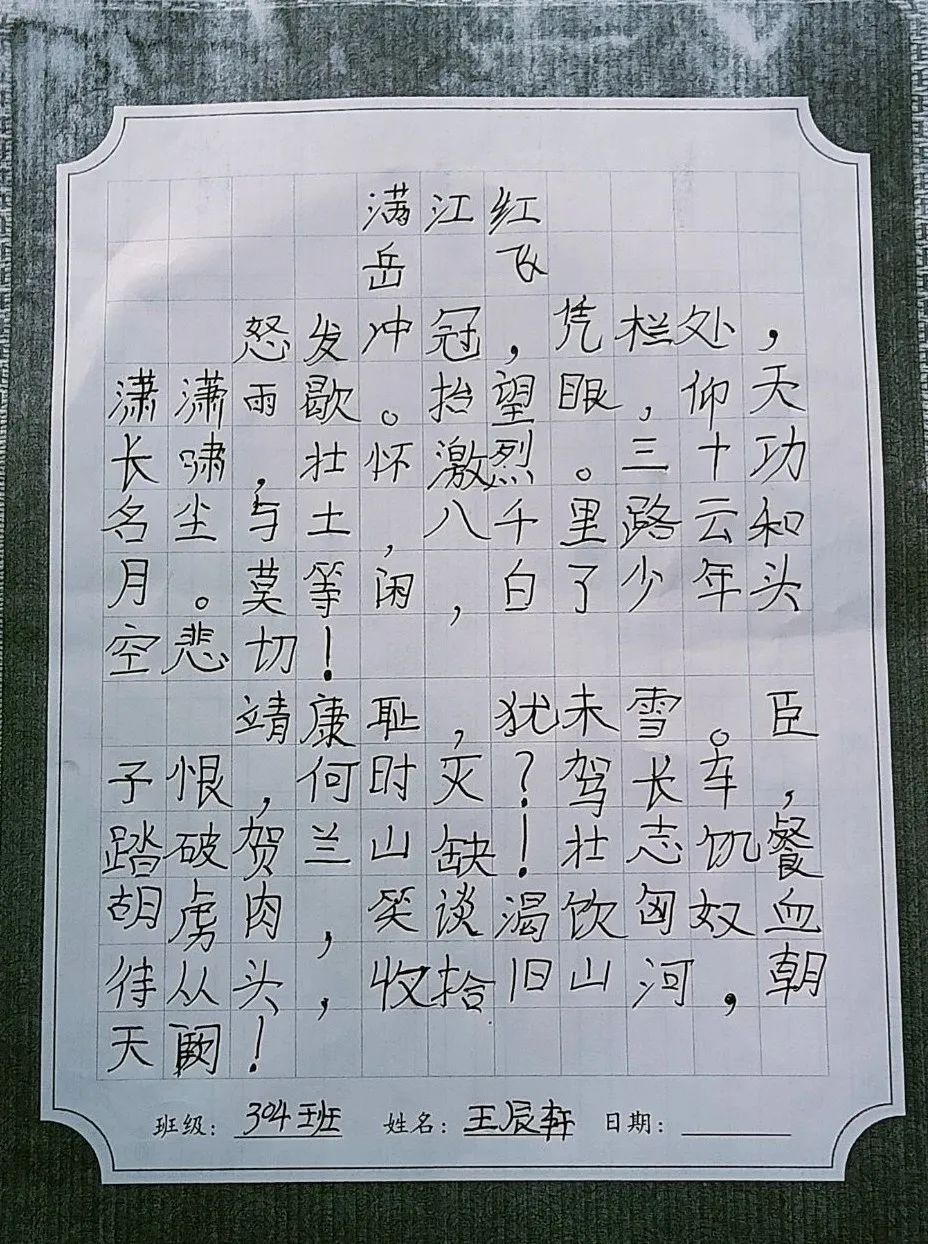 满江红
岳飞
怒发冲冠,凭栏处,
潇潇雨歇。抬望眼,仰天
长啸,壮怀激烈。三十功
名尘与土,八千里路云和
月。莫等闲,白了少年头
空悲切!
靖康耻,犹未雪。臣
子恨,何时灭?驾长车,
踏破贺兰山缺!壮志饥餐
胡虏肉,笑谈渴饮匈奴血
待从头,收拾旧山河,朝
天阙!
班级:304班 姓名:王辰轩 日期: